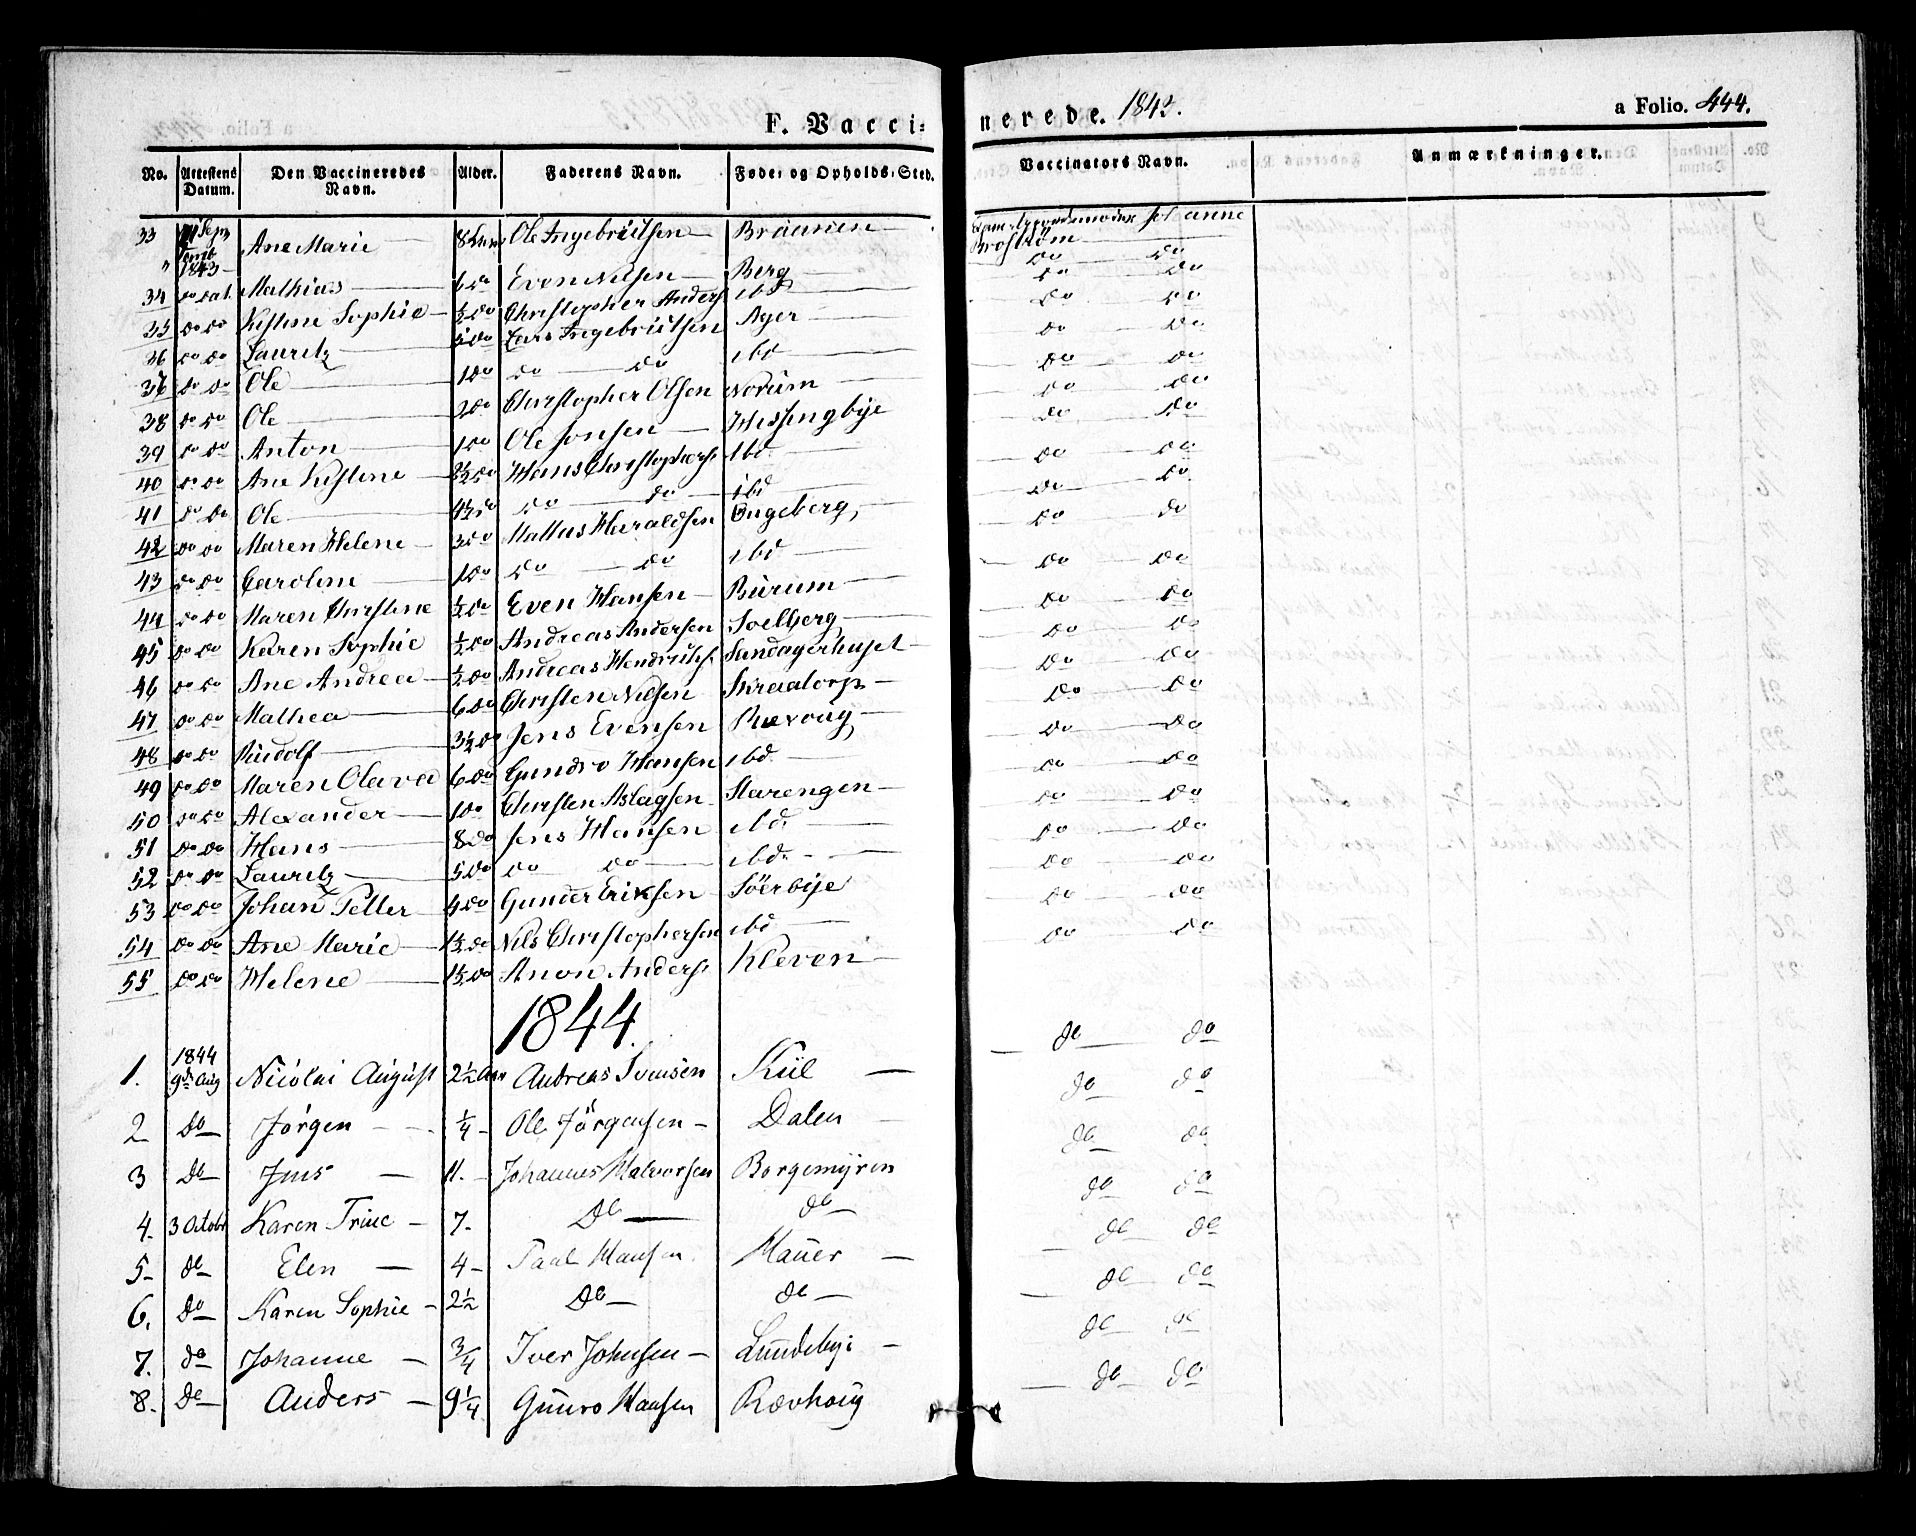 F. Vacci- nerede. 1843. a Folio. 444.
No. Attestens Datum. Den Vaccineredes Navn. Alder. Faderens Navn. Føde- og Opholds-Sted. Vaccinators Navn. Anmærkninger.
33 1843 Ane Marie 8 Ole Ingebritsen Braanen Brøstrøm
34 do Mathias 6 do Even Nilsen Berg do do
35 do do Kistine Sophie ½ do Christopher Anders ibd do do
36 do do Lauritz 5 do Lars Ingebritsen Ager do do
37 do do Ole 1 do do do ibd do do
38 do do Ole 2 do Christopher Olsen Norum do do
39 do do Anton 1 do Ole Jonsen Hessingbye do do
40 do do Ane Kistine 2½ do Hans Christophers ibd do do
41 do do Ole 4½ do do do ibd do do
42 do do Maren Helene 3 do Mattias Haraldsen Engeberg, do do
43 do do Caroline 1 do do do ibd do do
44 do do Maren Christine ½ do Even Hansen Rürum do do
45 do do Karen Sophie ½ do Andreas Andersen Soelberg do do
46 do do Ane Andrea ½ do Andreas Hendrichs Sandagerhuset do do
47 do do Mathea 6 do Christen Nilsen Skraatorp do do
48 do do Rudolf 3½ do Jens Evensen Ruevoug do do
49 do do Maren Olava 6 do Gundro Hansen ibd. do do
50 do do Alexander 1 do Christen Aslagsen Starengen do do
51 do do Hans 8 do Jens Hansen ibd. do do
52 do do Lauritz 5 do do do ibd. do do
53 do do Johan Petter 4 do Gunder Eriksen Söerbye do do
54 do do Ane Marie 1½ do Nils Christophersen ibd do do
55 do do Helene 1½ do Anon Anders Kleven do do
1844.
1. 1844 9de Aug Nicolai August 2½ Aar Andreas Svensen Kiil do do
2 do Jørgen ¼ Ole Jörgensen Dalen do do
3 do Jens 11. Johannes Halvorsen Borgemyren do do
4. 3 Octobr Karen Trine 7. do do do do
5 do Elen 4 Paal Hansen Hauer do do
6. do Karen Sophie 2½ do do do do
7. do Johanne ¾ Iver Johnsen Lundebye do do
8. do Anders 9¼ Gunro Hansen Rævhoug do do